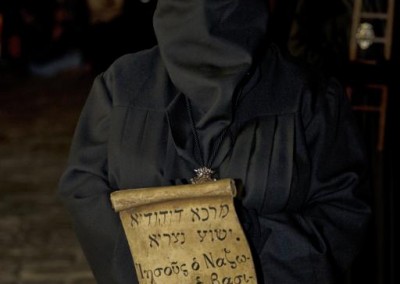 מרכא דיהודיא
ישוע נצריא .
Ἰησοῦς ὁ Ναζω-
ὁ βασι-